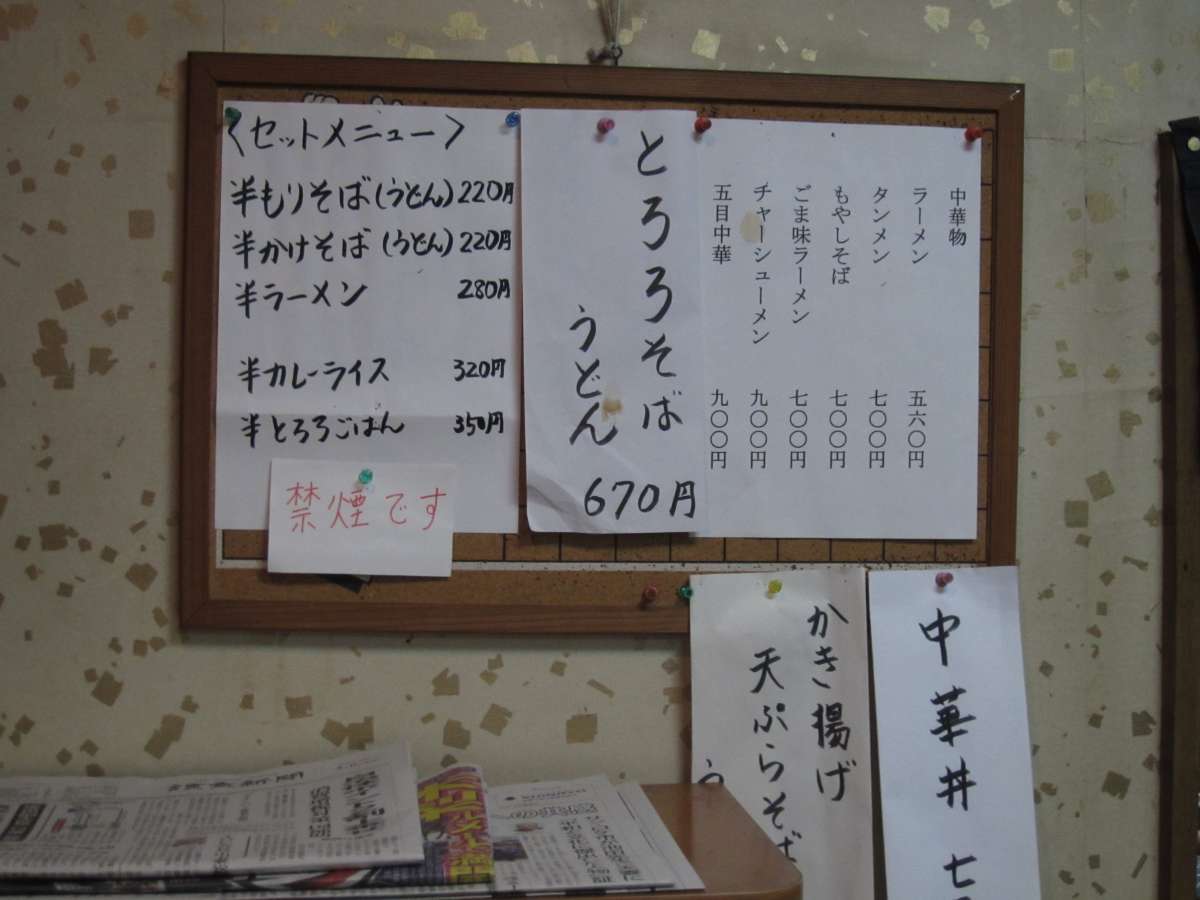 〈セットメニュー〉
半もりそば(うどん)220円
半かけそば(うどん)220円
半ラーメン 280円
半カレーライス 320円
半とろろごはん 350円
禁煙です
とろろそば
うどん
670円
中華物
ラーメン 五六〇円
タンメン 七〇〇円
もやしそば 七〇〇円
ごま味ラーメン 七〇〇円
チャーシューメン 九〇〇円
五目中華 九〇〇円
かき揚げ
天ぷらそば
う
中華丼 七
読売新聞